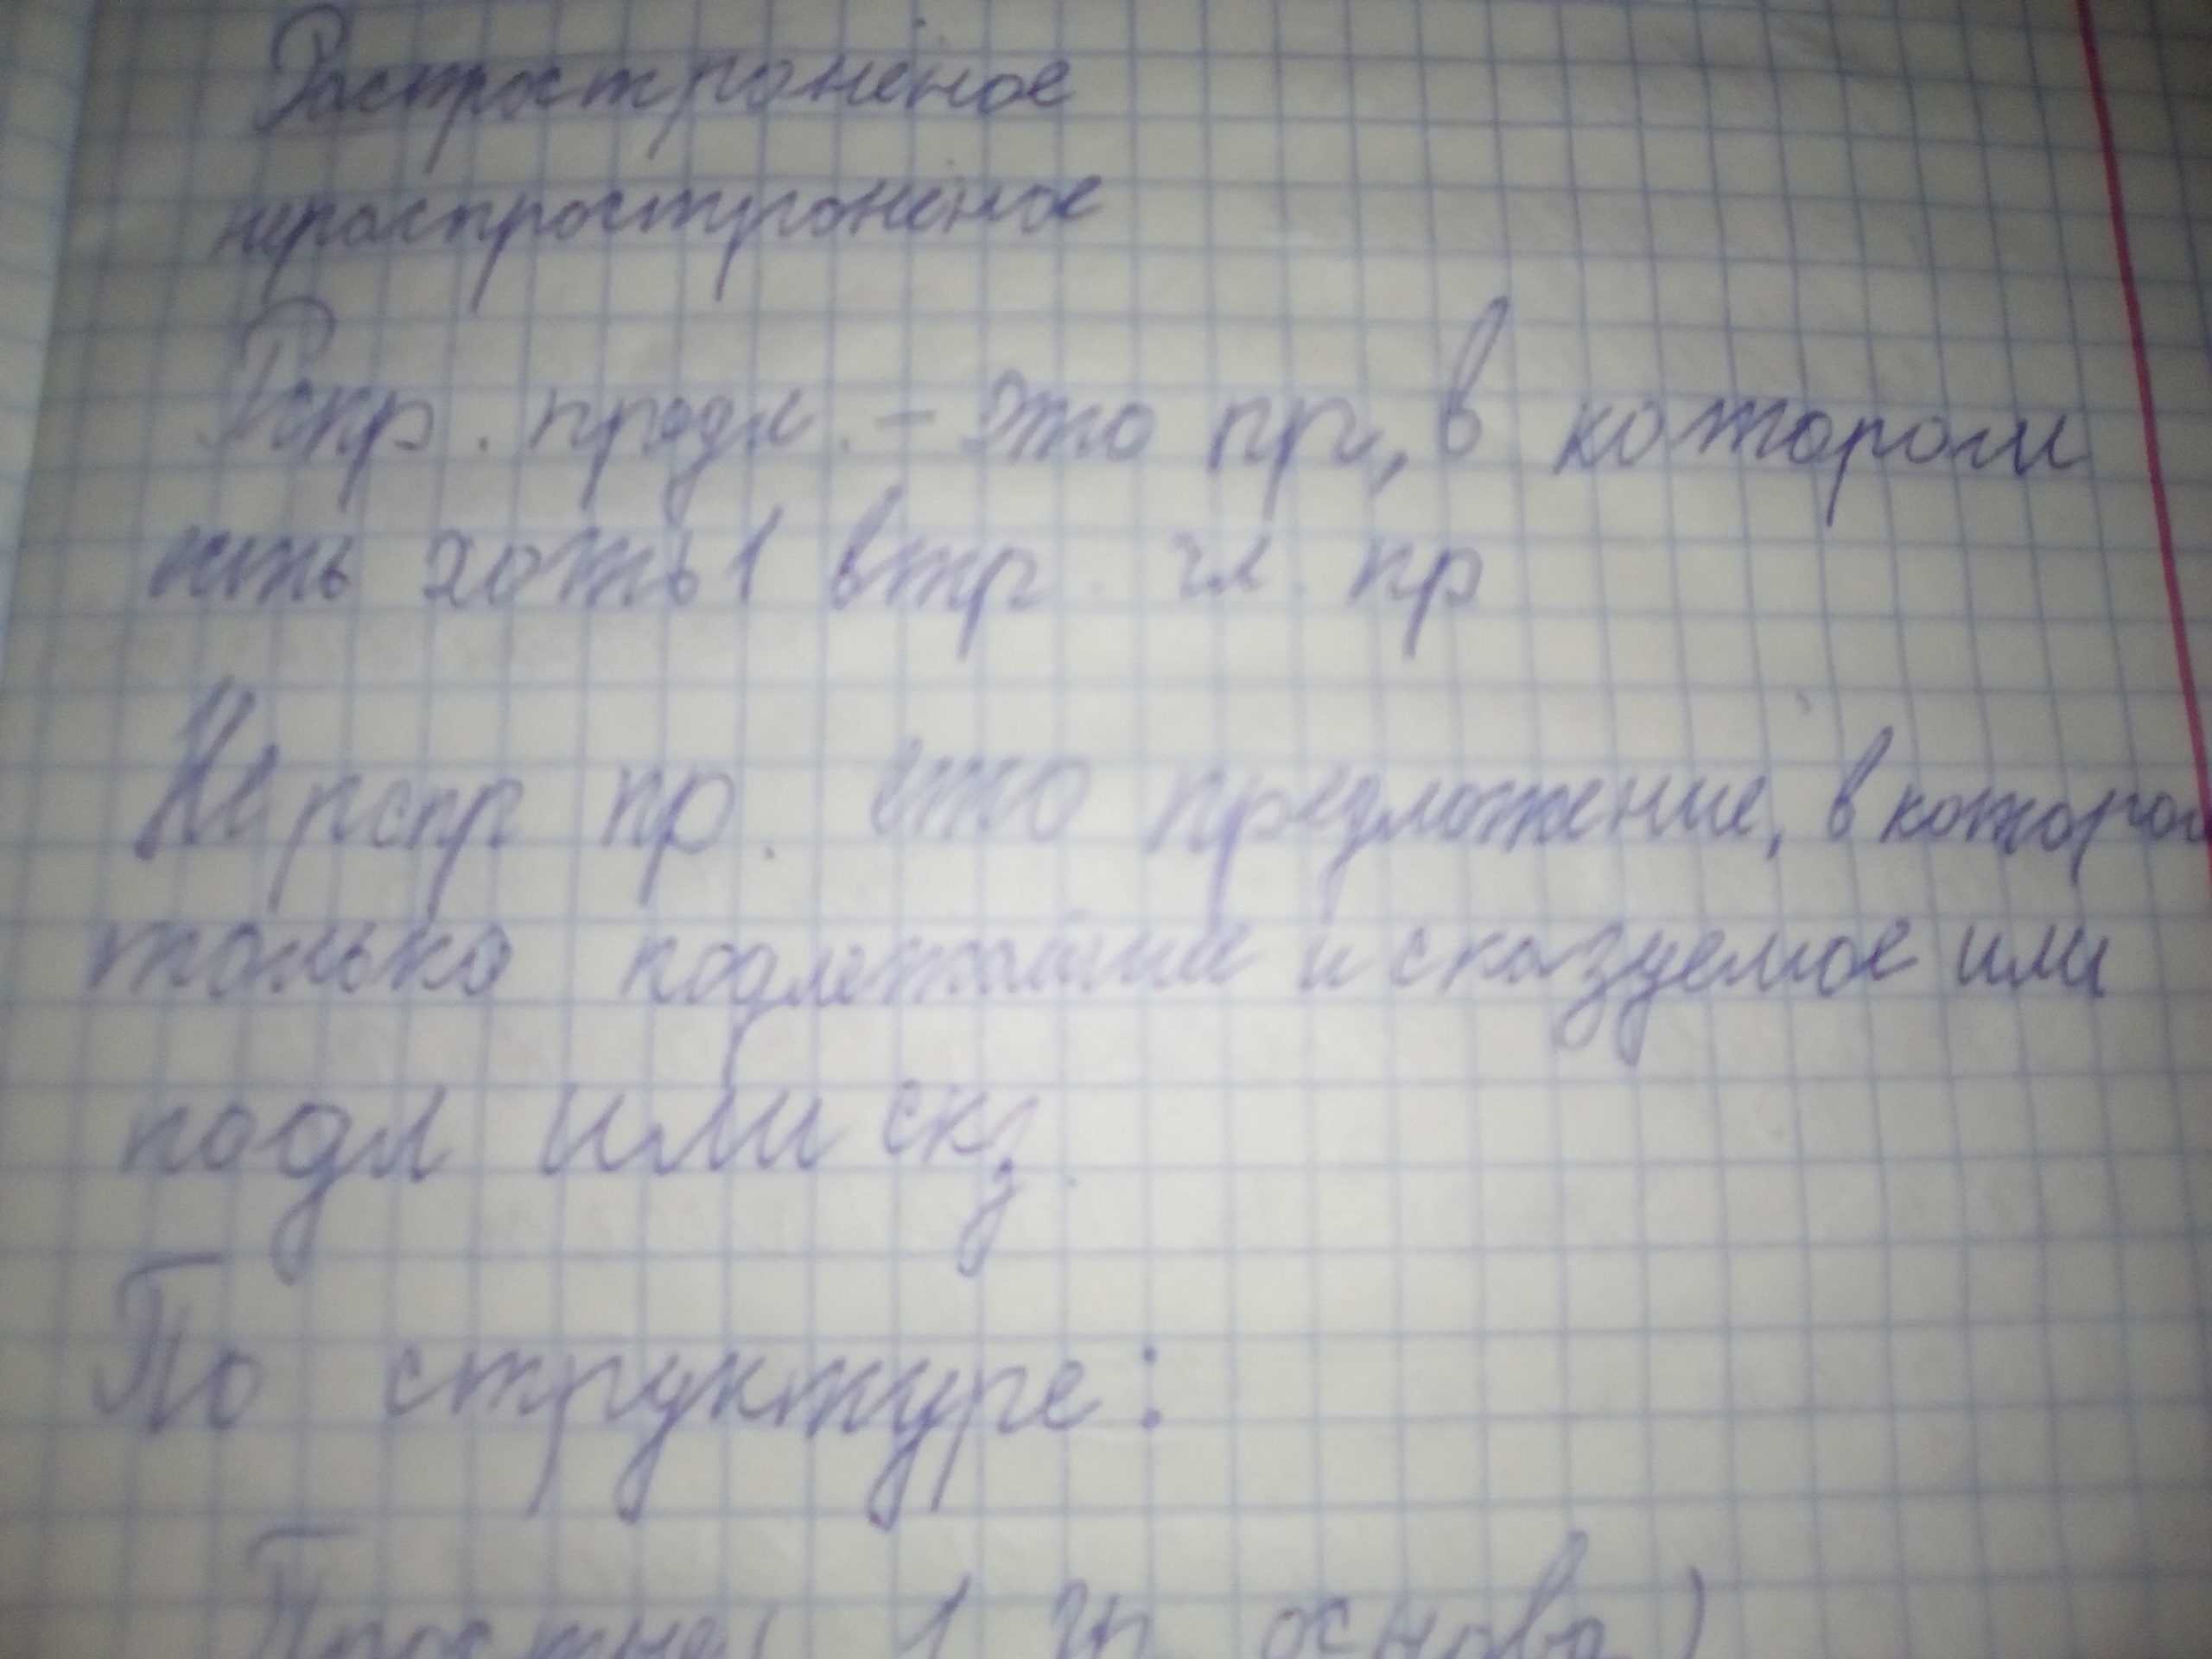 Распростронёное
нераспростронёное
Рспр. предл. - это пр, в котором
есть хоть 1 втр. чл. пр
Не рспр пр. это предложение, в котором
только подлежайшие и сказуемое или
подл или скз.
По структуре:
Простые (1 гр. основа)